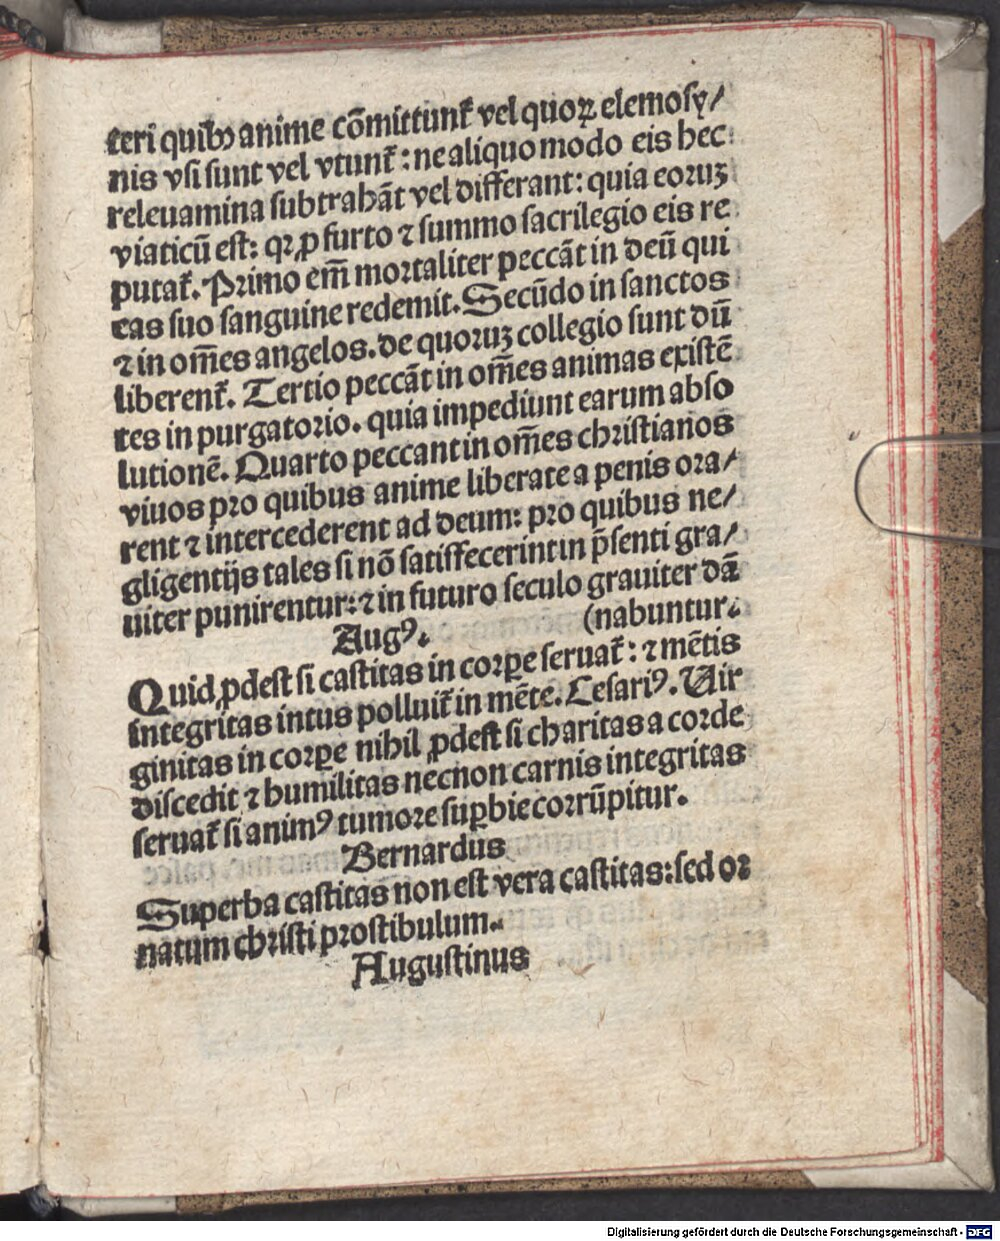 teri quibꝫ anime cōmittunt᷑ vel quoꝝ elemosy/
nis vsi sunt vel vtunt᷑ : ne aliquo modo eis hec
releuamina subtrahāt vel differant: quia eoruꝫ
viaticū est: qꝛ ꝓ furto ⁊ summo sacrilegio eis re
putat᷑. Primo em̄ mortaliter peccāt in deū qui
eas suo sanguine redemit. Secūdo in sanctos
⁊ in om̄es angelos. de quoruꝫ collegio sunt dū
liberent᷑. Tertio peccāt in om̄es animas existē
tes in purgatorio. quia impediunt earum abso
lutionē. Quarto peccant in om̄es christianos
viuos pro quibus anime liberate a penis ora/
rent ⁊ intercederent ad deum: pro quibus ne/
gligentijs tales si nō satisfecerint in p̄senti gra/
uiter punirentur: ⁊ in futuro seculo grauiter dā
Augꝰ. (nabuntur.
Quid ꝓdest si castitas in corꝑe seruat᷑ : ⁊ mētis
integritas intus polluit᷑ in mēte. Cesariꝰ. Uir
ginitas in corꝑe nihil ꝓdest si charitas a corde
discedit ⁊ humilitas necnon carnis integritas
seruat᷑ si animꝰ tumore suꝑbie corrūpitur.
Bernardus
Superba castitas non est vera castitas: sed or
natum christi prostibulum.
Augustinus
Digitalisierung gefördert durch die Deutsche Forschungsgemeinschaft - DFG